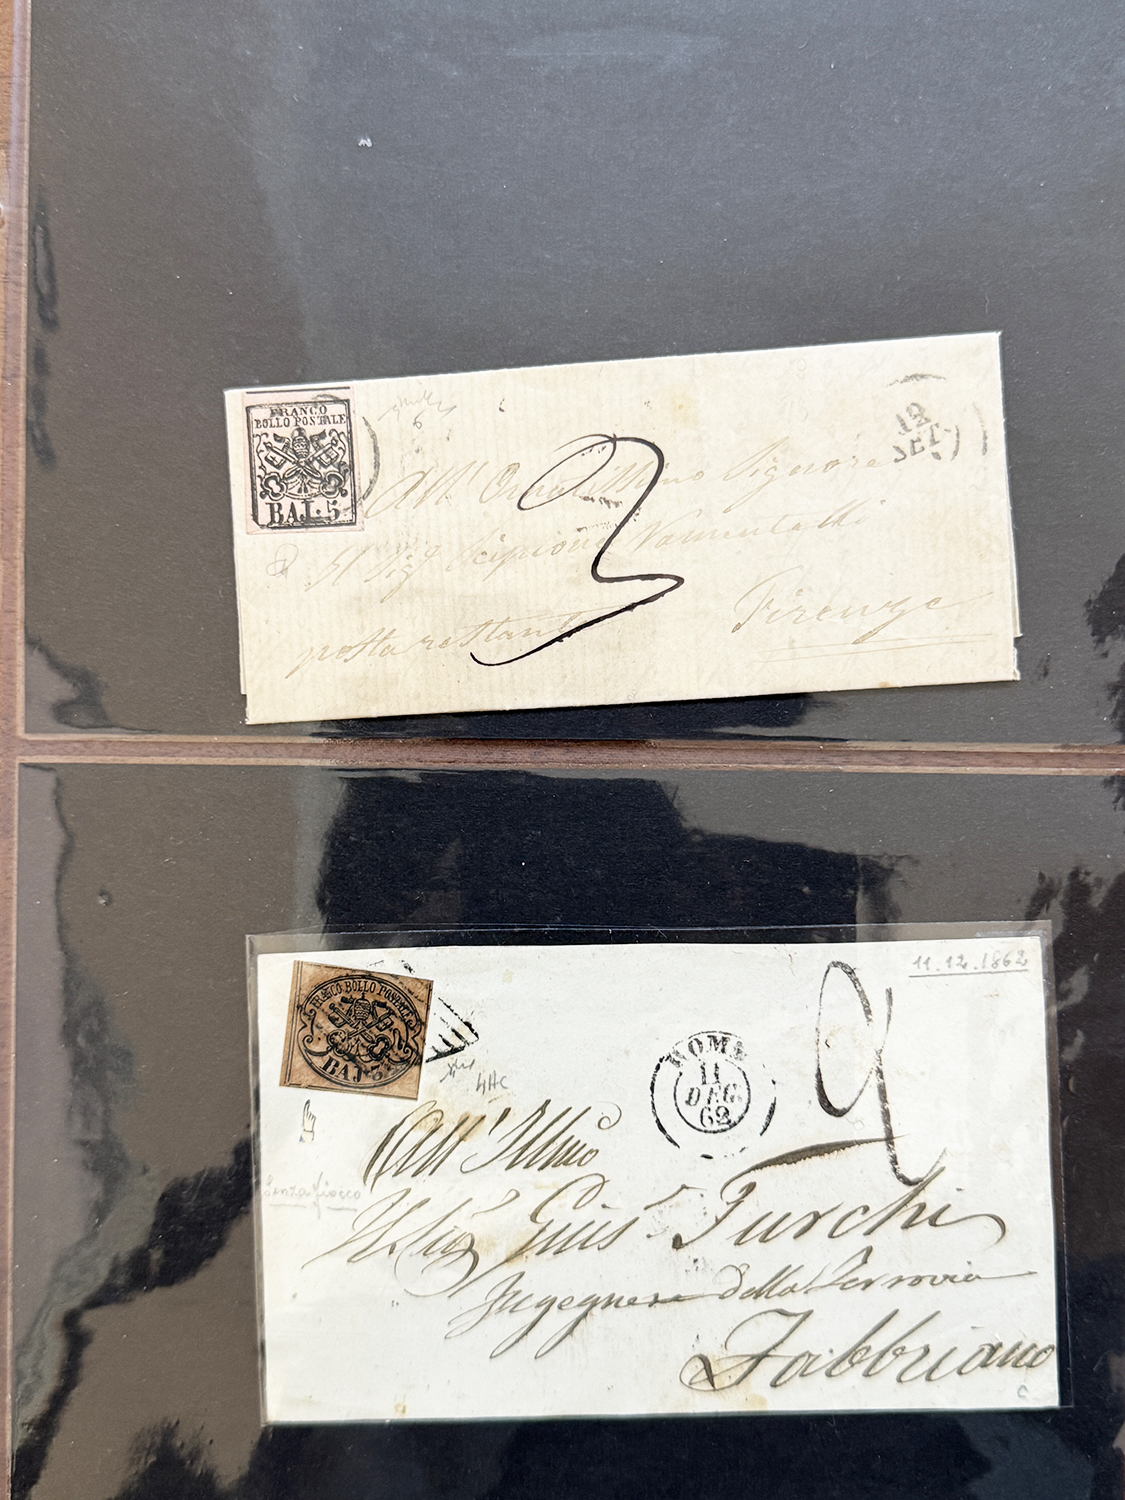 FRANCO
BOLLO POSTALE
BAJ. 5
6
12
SET.
All' Signore
Il Sig.r Scipione
posta restante
Firenze
3
11.12.1862
FRANCO BOLLO POSTALE
BAJ. 3
4HC
ROMA
11
DEC.
62
2
All' Illmo
Senza fiocco
Il Sig Gius Furchi
Ingegnere della Ferrovia
Fabbriano
C